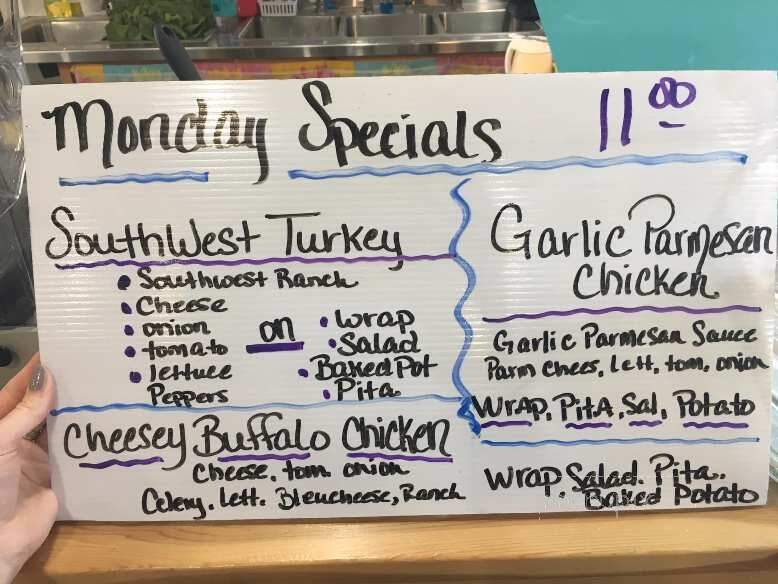 Monday Specials 11.00
SouthWest Turkey
• Southwest Ranch
• Cheese
• onion
• tomato
• lettuce
Peppers
on
• Wrap
• Salad
• Baked Pot
• Pita
Garlic Parmesan
Chicken
Garlic Parmesan Sauce
Parm Chees, Lett, tom, onion
Wrap, PitA, Sal, Potato
Cheesey Buffalo Chicken
Cheese, tom. onion
Celery. Lett. Bleucheese, Ranch
Wrap, Salad. Pita.
Baked Potato